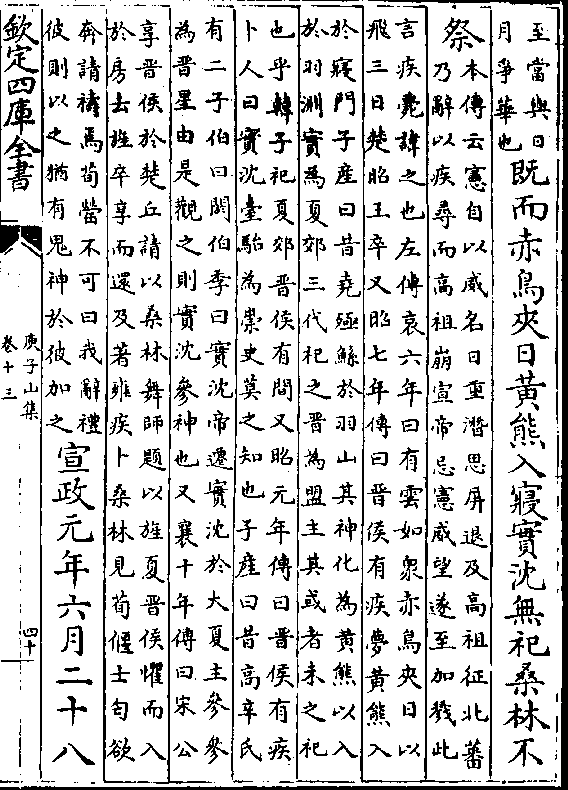 至當與日
月爭華也
既而赤烏夾日黃熊入寢實沈無祀桑林不
祭
本傳云憲自以威名日重潛思屏退及高祖征北蕃
乃辭以疾尋而高祖崩宣帝忌憲威望遂至加戮此
言疾薨諱之也左傳哀六年曰有雲如衆赤烏夾日以
飛三日楚昭王卒又昭七年傳曰晉侯有疾夢黃熊入
於寢門子產曰昔堯殛鯀於羽山其神化為黃熊以入
於羽淵實為夏郊三代祀之晉為盟主其或者未之祀
也乎韓子祀夏郊晉侯有間又昭元年傳曰晉侯有疾
卜人曰實沈臺駘為祟史莫之知也子產曰昔高辛氏
有二子伯曰閼伯季曰實沈帝遷實沈於大夏主參參
為晉星由是觀之則實沈參神也又襄十年傳曰宋公
享晉侯於楚丘請以桑林舞師題以旌夏晉侯懼而入
於房去旌卒享而還及著雍疾卜桑林見荀偃士匄欲
奔請禱焉荀罃不可曰我辭禮
彼則以之猶有鬼神於彼加之
宣政元年六月二十八
欽定四庫全書
庾子山集
卷十三
四十